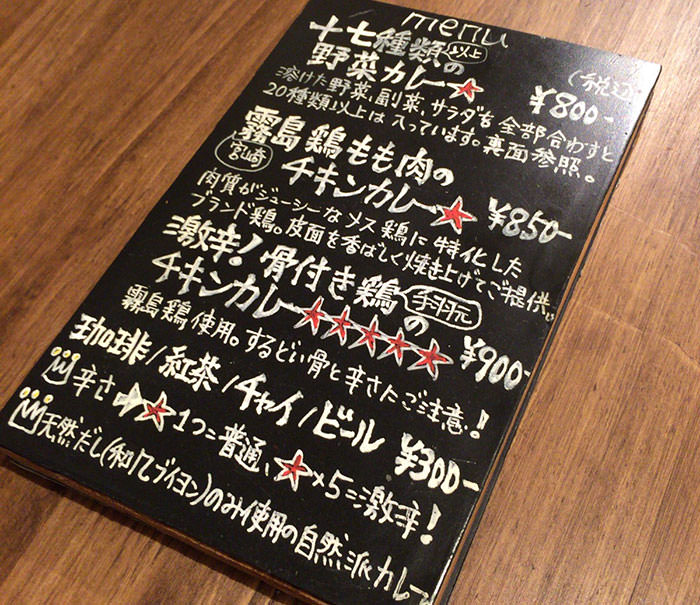 menu
十七種類の
以上
野菜カレー★
(税込)
¥800-
溶けた野菜、副菜、サラダを全部合わすと
20種類以上は入っています。裏面参照。
霧島鶏もも肉の
宮崎
チキンカレー★
¥850-
肉質がジューシーなメス鶏に特化した
ブランド鶏。皮面を香ばしく焼き上げてご提供。
激辛!骨付き鶏の
チキンカレー★★★★★
¥900-
霧島鶏使用。するどい骨と辛さにご注意!
珈琲/紅茶/チャイ/ビール
¥300-
辛さ→★1つ=普通、★×5=激辛!
天然だし(和風ブイヨン)のみ使用の自然派カレー。